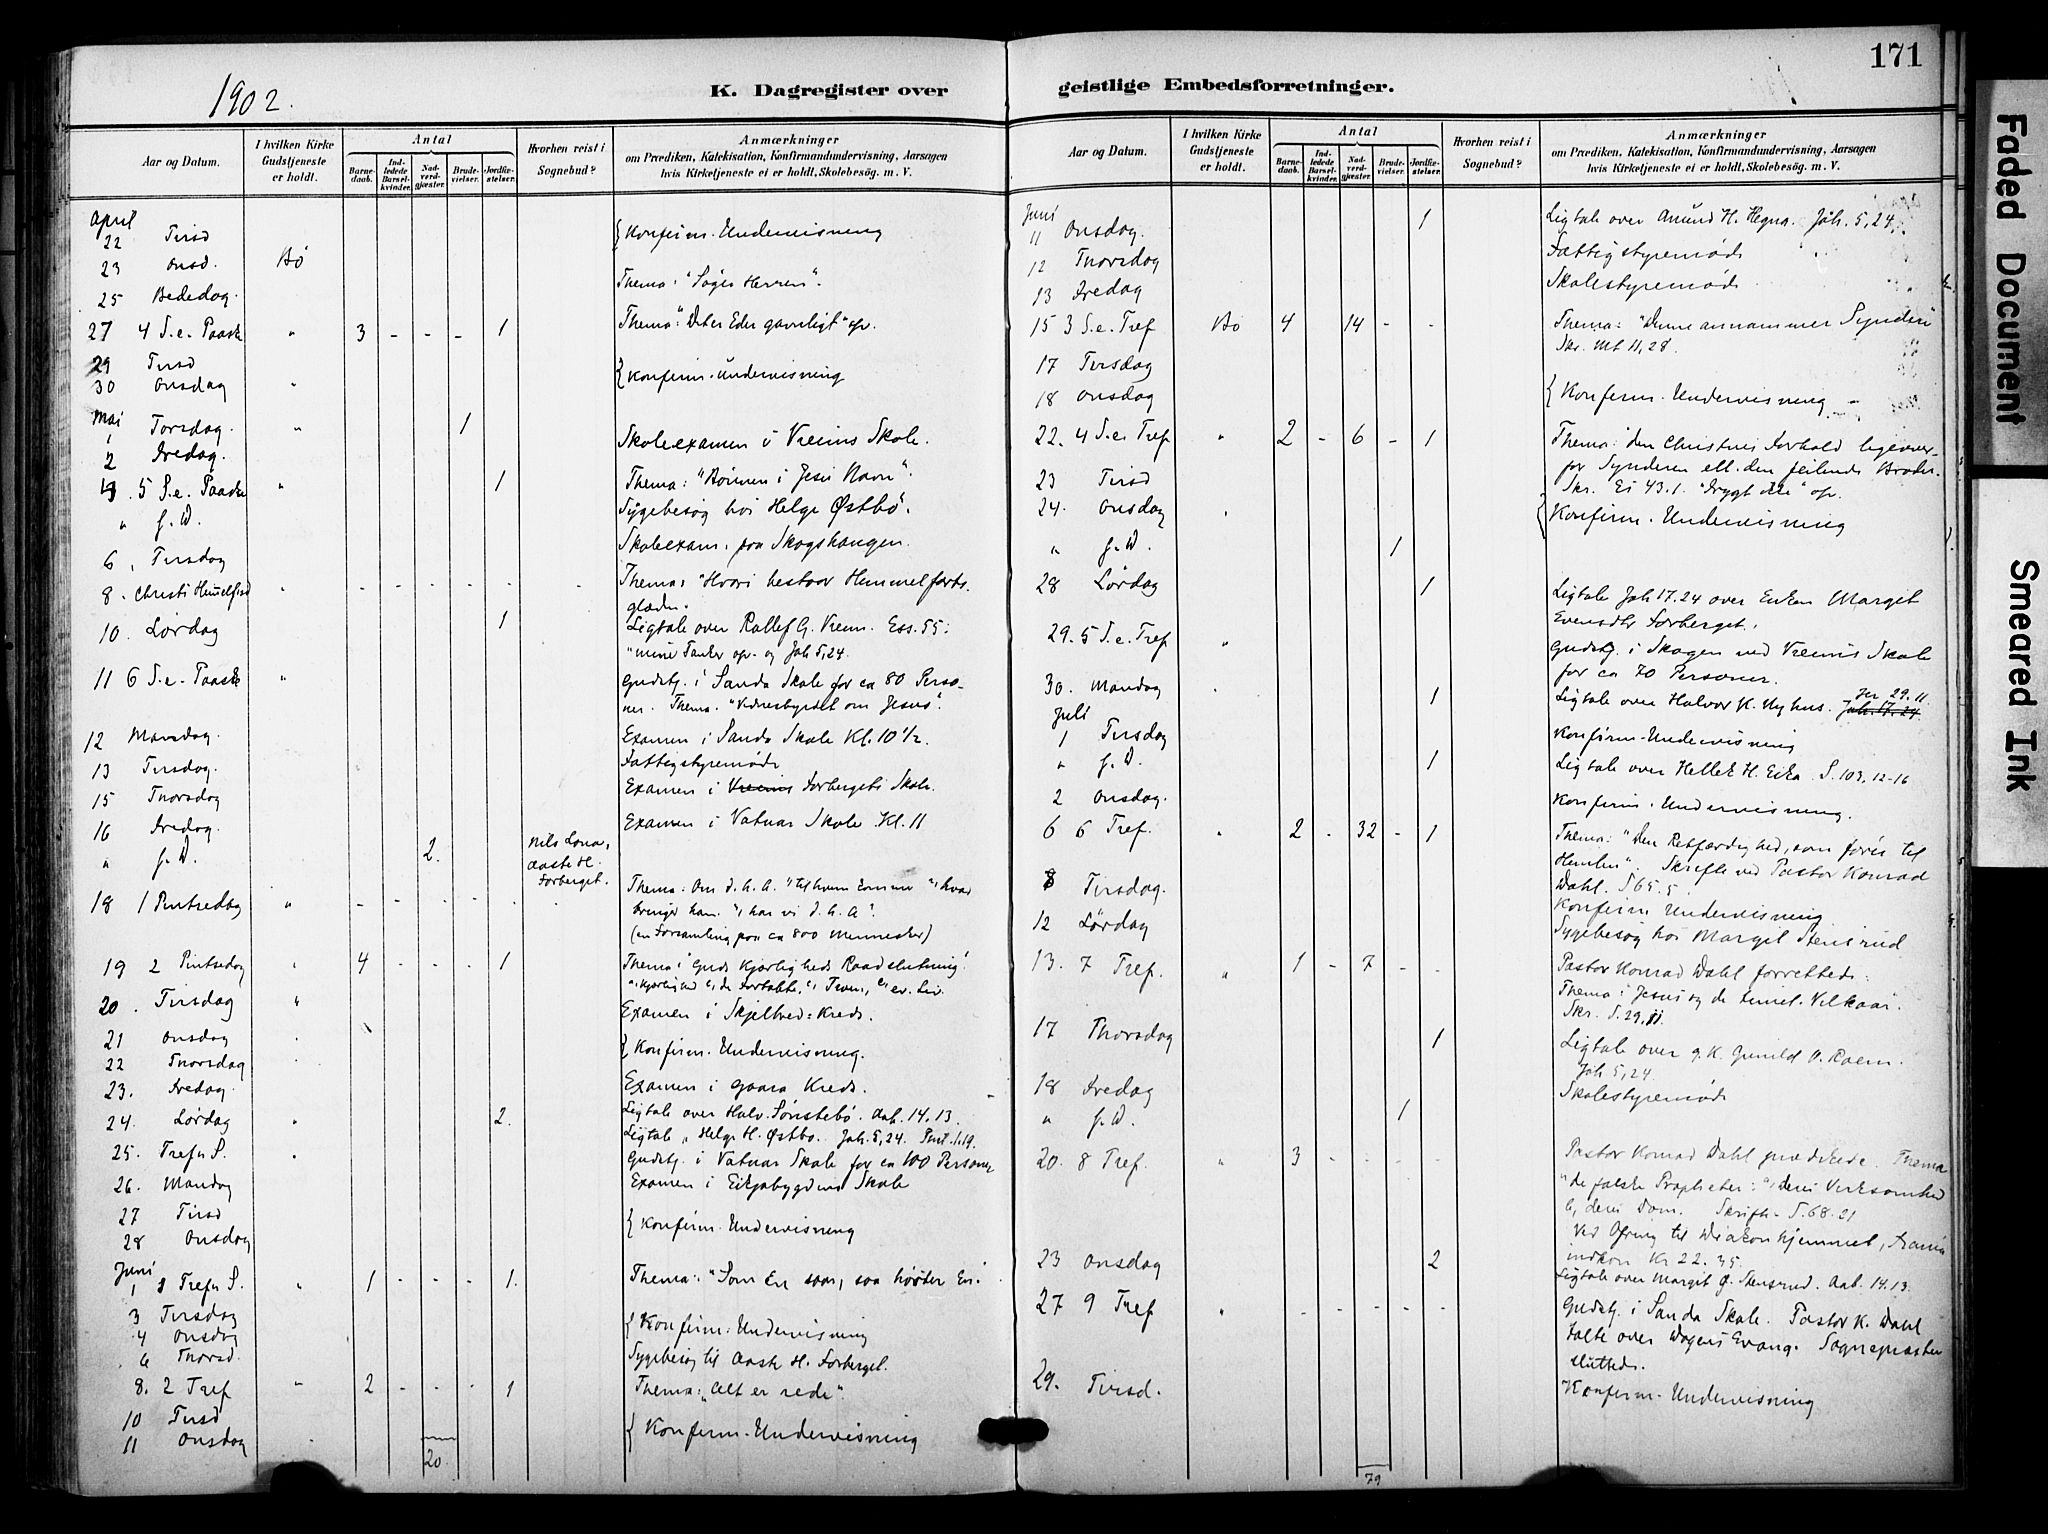 171
1902.
K. Dagregister over
geistlige Embedsforretninger.
Aar og Datum.
I hvilken Kirke Gudstjeneste er holdt.
Antal
Barne-daab.
Ind-ledede Barsel-kvinder.
Nad-verd-gjæster.
Brude-vielser.
Jordfæ-stelser.
Hvorhen reist i Sognebud?
Anmærkninger
om Prædiken, Katekisation, Konfirmandundervisning, Aarsagen
hvis Kirketjeneste ei er holdt, Skolebesøg. m. V.
April
22 Tirsd { Konfirm. Undervisning
23 Onsd. Bø
25 Bededag. Thema: "Søger Herren".
27 4 S. e. Paaske " 3 - - - 1 Thema: "Det er Eder gavnligt" op.
29 Tirsd
30 Onsdag " { Konfirm. Undervisning
Mai
1 Torsdag. " 1
2 Fredag. Skoleexamen i Vreims Skole.
4. 5 S. e. Paaske " 1 Thema: "Bønnen i Jesu Navn".
" s. D. Sygebesøg hos Helge Østbø.
6. Tirsdag Skoleexam. paa Skogshaugen.
8. Christi Himmelfrd " - - - - - - Thema: "Hvori bestaar Himmelfarts-
glæden.
10. Lørdag 1 Ligtale over Rollef G. Vreim. Ess. 55:
"mine Tanker op. og Joh 5,24.
11 6 S. e. Paaske " Gudstj. i Sanda Skole for ca 80 Perso-
ner. Thema. "Vidnesbyrdet om Jesus".
12 Mandag. Examen i Sanda Skole Kl. 10 1/2.
13 Tirsdag. Fattigstyremøde
15 Thorsdag Examen i Vreims Forbergets Skole.
16 Fredag. Examen i Vatnar Skole Kl. 11
" s. D. 2. Nils Lona,
Aaste H.
Forberget.
18 1 Pintsedag " - - - - - . Thema: Om d. h. A. "til hvem kommer", hvad
bringer han. ", har vi d. h. A".
(en Forsamling paa ca 800 Mennesker)
19 2 Pintsedag " 4 - - - 1 Thema: "Guds Kjærligheds Raadslutning".
20. Tirsdag " Examen i Skjelbred-Kreds.
21 Onsdag
22 Thorsdag { Konfirm. Undervisning.
23. Fredag. Examen i Gaara Kreds.
24. Lørdag " 2. Ligtale over Halv. Sønstebø. Aab. 14.13.
Ligtale " Helge H. Østbø. Joh. 5,24.
25. Trefn S. " Gudstj. i Vatnar Skole for ca 100 Personer
26. Mandag Examen i Eikjabygdens Skole
27 Tirsd
28 Onsdag { Konfirm. Undervisning
Juni
1 1 Trefn S. " 1 - - - 1. Thema: "Som En saar, saa høster En".
3 Tirsdag
4 Onsdag { Konfirm. Undervisning
6 Thorsd. Sygebesøg til Aaste H. Forberget.
8. 2 Tref " 2 - - - 1 Thema: "Alt er rede".
10 Tirsd
11 Onsdag { Konfirm. Undervisning
20
Aar og Datum.
I hvilken Kirke Gudstjeneste er holdt.
Antal
Barne-daab.
Ind-ledede Barsel-kvinder.
Nad-verd-gjæster.
Brude-vielser.
Jordfæ-stelser.
Hvorhen reist i Sognebud?
Anmærkninger
om Prædiken, Katekisation, Konfirmandundervisning, Aarsagen
hvis Kirketjeneste ei er holdt, Skolebesøg. m. V.
Juni
11 Onsdag. 1 Ligtale over Amund H. Hegna. Joh. 5,24.
12 Thorsdag Fattigstyremøde
13 Fredag Skolestyremøde
15 3 S. e. Tref Bø 4 14 - - Thema: "Denne annammer Syndere
Skr. Mt 11,28.
17 Tirsdag
18 Onsdag { Konfirm. Undervisning
22. 4 S. e. Tref " 2 - 6 - 1 Thema: den Christnes Forhold ligeover-
for Synderen ell. den feilende Broder.
Skr. Es 43.1. "Frygt ikke" op.
23 Tirsd
24. Onsdag " { Konfirm. Undervisning
" s. D. 1
28 Lørdag 1 Ligtale Joh 17.24 over Enken Margit
Evensdtr Forberget.
29. 5 S. e. Tref " Gudstj. i Skogen ved Vreims Skole
for ca 70 Personer.
30. Mandag " 1 Ligtale over Halvor K. Nyhus. Joh. 17.24 Jer 29.11
Juli
1 Tirsdag Konfirm. Undervisning
" s. D. 1 Ligtale over Hellek H. Eika. S. 103, 12-16
2 Onsdag. Konfirm. Undervisning.
6 6 Tref. " 2 - 32 - 1 Thema: "Den Retfærdighed, som fører til
Himlen". Skrifte ved Pastor Konrad
Dahl. S 65.5.
8 Tirsdag. Konfirm. Undervisning
12 Lørdag Sygebesøg hos Margit Stensrud
13. 7 Tref. " 1 - 7 - - Pastor Konrad Dahl forrettede.
Thema: "Jesus og de timel. Vilkaar.
Skr. S. 29,11.
17 Thorsdag 1 Ligtale over g. K. Gunild
Joh 5,24.
18 Fredag Skolestyremøde
" s. D. 1
20. 8 Tref. " 3 - - - - Pastor Konrad Dahl prædikede. Thema
"de falske Propheter: a, deres Virksomhed
b, deres Dom. Skrifte - S. 68.21
Ved Ofring til Diakonhjemmet,
indkom Kr 22.35.
23 Onsdag 2 Ligtale over Margit Ø. Stensrud. Aab. 14.13.
27 9 Tref " - - - - - Gudstj. i Sanda Skole. Pastor K. Dahl
talte over Dagens Evang. Sognepræsten
sluttede.
29. Tirsd. Konfirm. Undervisning
79
Faded Document
Smeared Ink